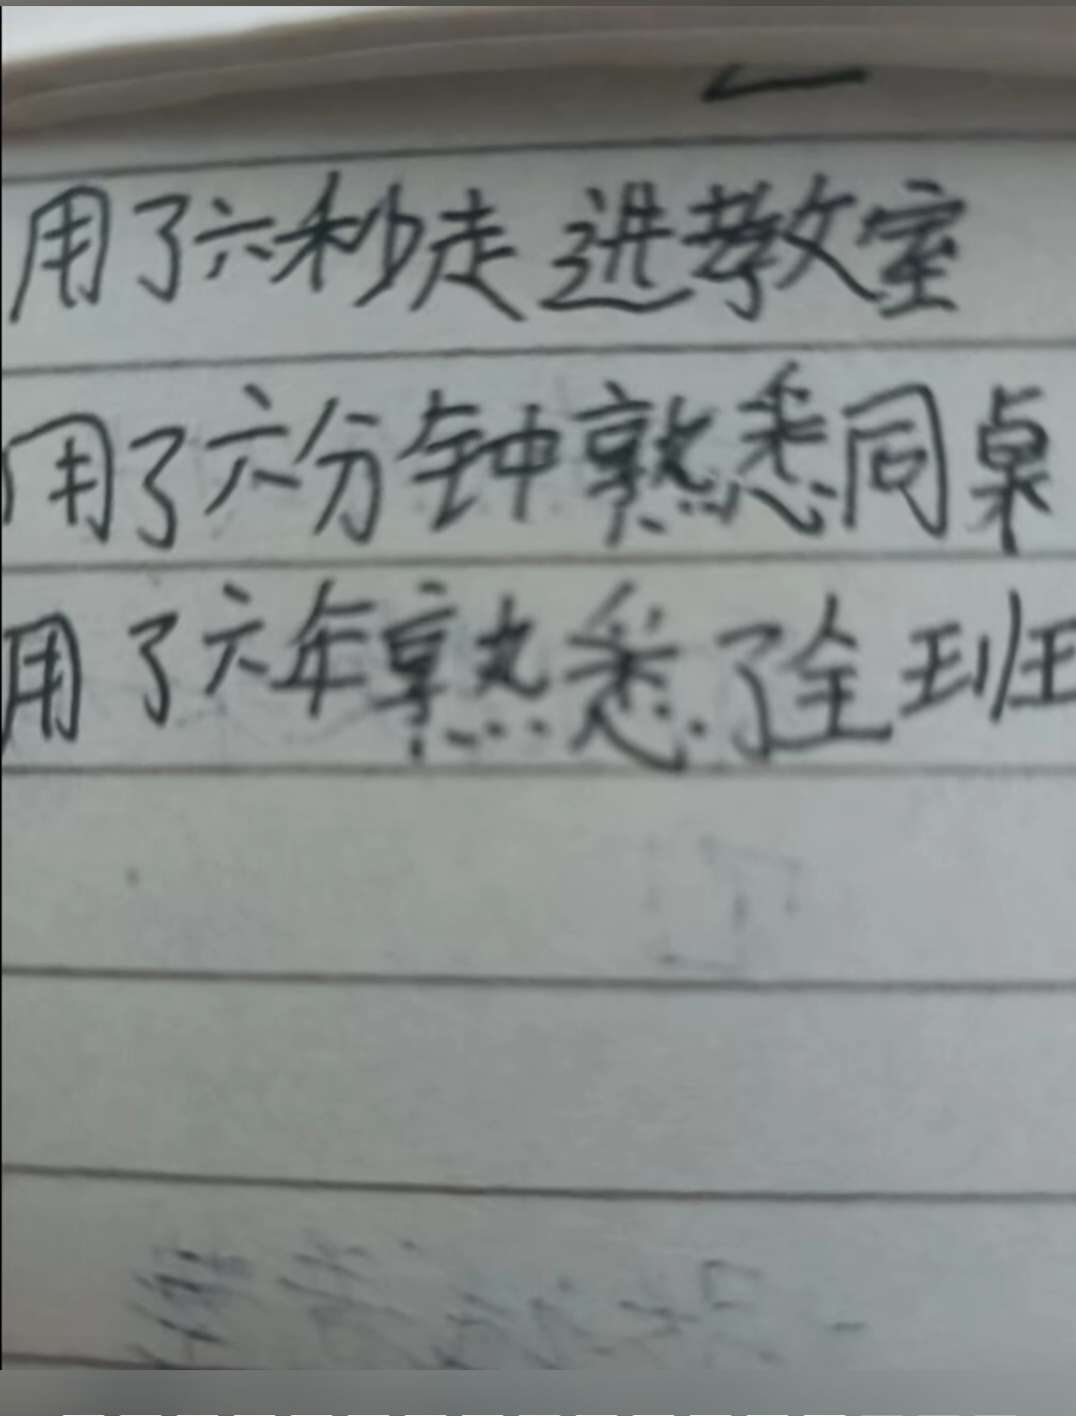 用了六秒走进教室
用了六分钟熟悉同桌
用了六年熟悉了全班